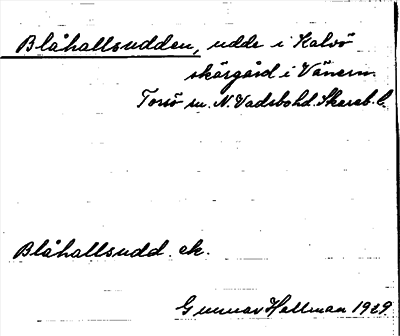 Blåhallsudden, udde i Kalvö
skärgård i Vänern.
Torsö sn. N. Vadsbo hd. Skarab. l.
Blåhallsudd. ek.
Gunnar Hallman 1929